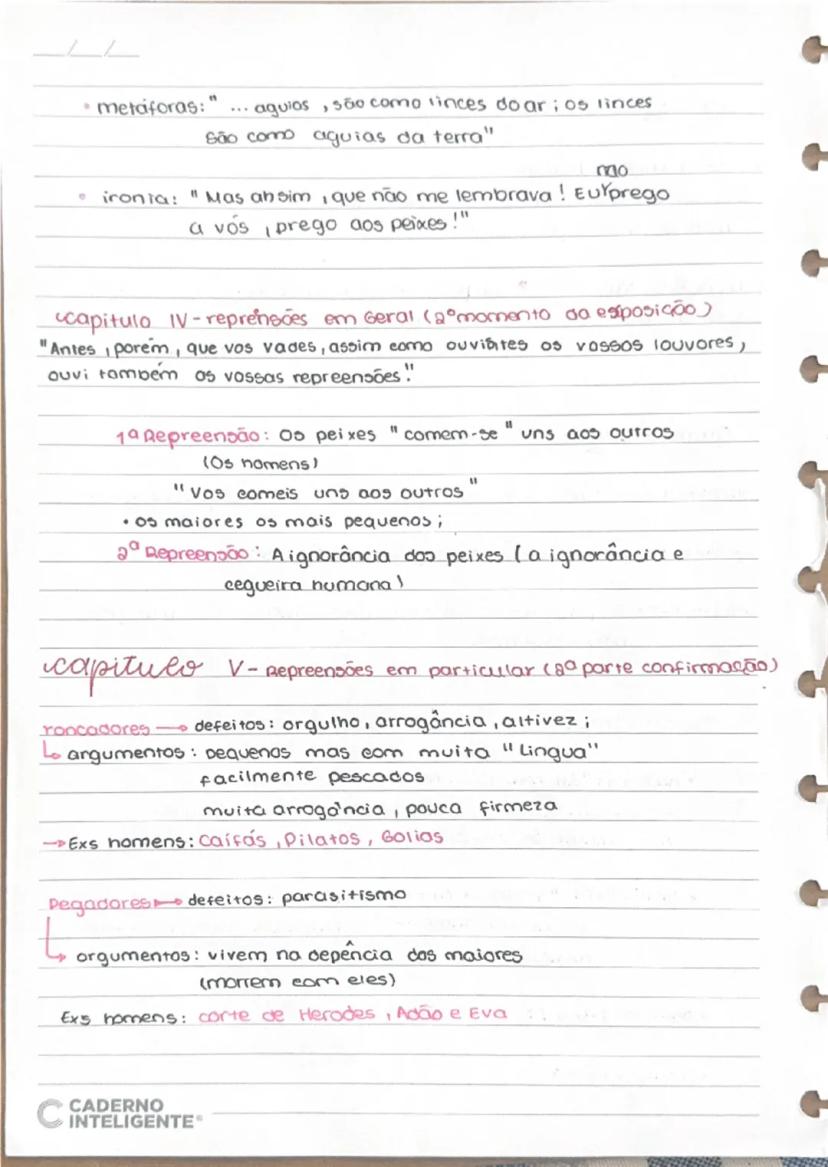 __/__/__
• metáforas: "... aguios , são como linces do ar ; os linces
são como aguias da terra"
mo
• ironia: "Mas ahsim , que não me lembrava ! Eu prego
a vós , prego aos peixes !"
Capitulo IV - reprensões em Geral (2º momento da exposição)
"Antes , porém , que vos vades , assim como ouvistes os vossos louvores ,
ouvi também os vossas repreensões".
1ª Repreensão: Os peixes "comem-se" uns aos outros
(Os homens)
"Vos comeis uns aos outros"
• os maiores os mais pequenos ;
2ª Repreensão: A ignorância dos peixes (a ignorância e
cegueira humana)
Capitulo V - Repreensões em particular (2ª parte confirmação)
roncadores → defeitos: orgulho, arrogância , altivez ;
↳ argumentos: pequenos mas com muita "Lingua"
facilmente pescados
muita arrogância , pouca firmeza
→ Exs homens: Caífás , Pilatos , Golias
Pegadores → defeitos: parasitismo
↳ argumentos: vivem na depência dos maiores
(morrem com eles)
Exs homens: corte de Herodes , Adão e Eva
CADERNO
INTELIGENTE®